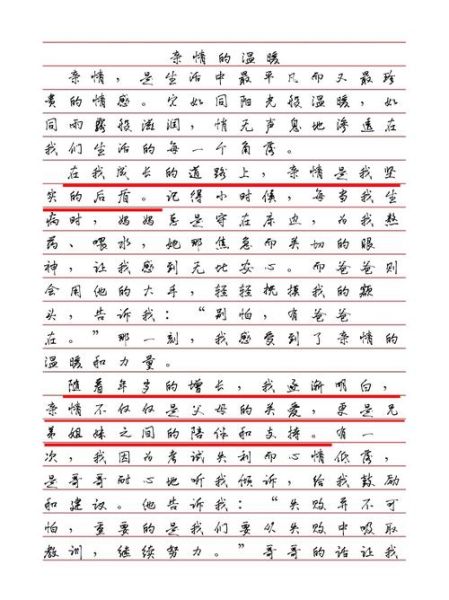 亲情的温暖
亲情，是生活中最平凡而又最珍
贵的情感。它如同阳光般温暖，如
同雨露般滋润，悄无声息地渗透在
我们生活的每一个角落。
在我成长的道路上，亲情是我坚
实的后盾。记得小时候，每当我生
病时，妈妈总是守在床边，为我熬
药、喂水，她那焦急而关切的眼
神，让我感到无比安心。而爸爸则
会用他的大手，轻轻抚摸我的额
头，告诉我：“别怕，有爸爸
在。”那一刻，我感受到了亲情的
温暖和力量。
随着年岁的增长，我逐渐明白，
亲情不仅仅是父母的关爱，更是兄
弟姐妹之间的陪伴和支持。有一
次，我因为考试失利而心情低落，
是哥哥耐心地听我倾诉，给我鼓励
和建议。他告诉我：“失败并不可
怕，重要的是我们要从失败中吸取
教训，继续努力。”哥哥的话让我